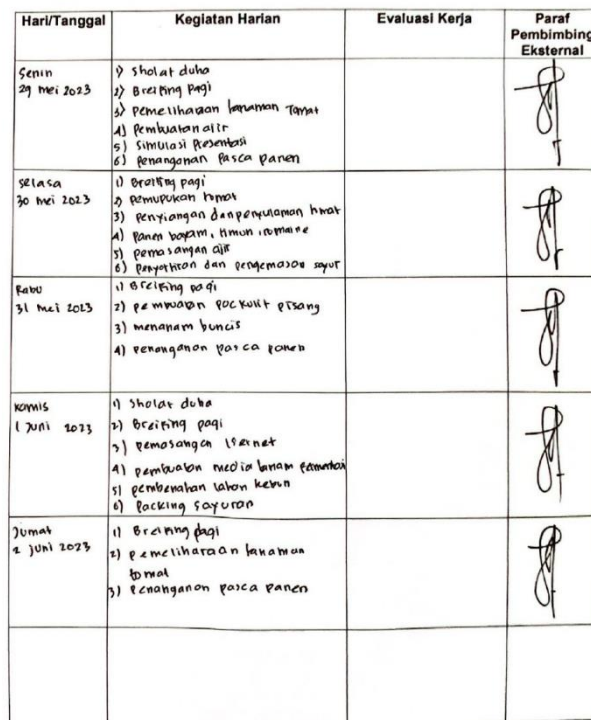 Hari/Tanggal
Kegiatan Harian
Evaluasi Kerja
Paraf
Pembimbing
Eksternal
Senin
29 mei 2023
1) Sholat duha
2) Breifing Pagi
3) Pemeliharaan tanaman Tomat
4) Pembuatan ajir
5) Simulasi Presentasi
6) Penanganan Pasca Panen
Selasa
30 mei 2023
1) Breifing pagi
2) Pemupukan tomat
3) Penyiangan dan penyulaman tomat
4) Panen bayam, timun, romaine
5) pemasangan ajir
6) Penyortiran dan pengemasan sayur
Rabu
31 Mei 2023
1) Breifing pagi
2) pembuatan POC kulit pisang
3) menanam buncis
4) Penanganan pasca panen
Kamis
1 Juni 2023
1) Sholat duha
2) Breifing pagi
3) pemasangan
4) pembuatan media tanam
5) pembenahan lahan kebun
6) Packing sayuran
Jumat
2 Juni 2023
1) Breifing pagi
2) pemeliharaan tanaman
tomat
3) Penanganan pasca panen